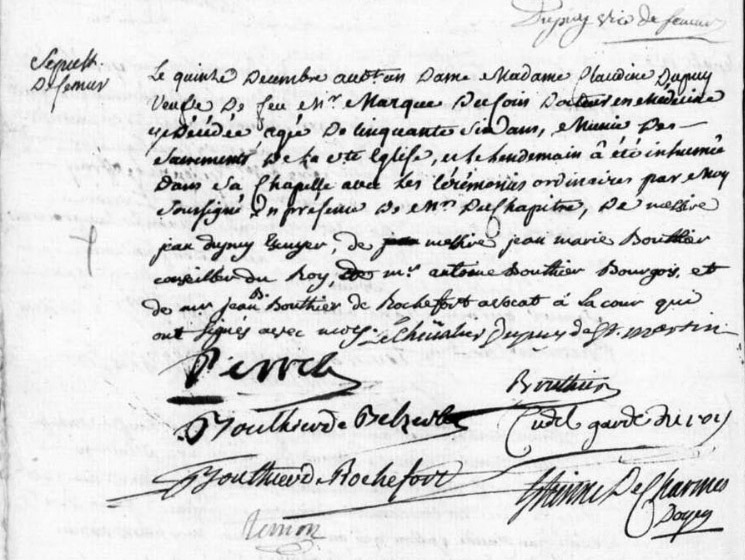 Dupuy
Sepult.
De femur
Le quinze Decembre audt. an Dame Madame Claudine Dupuy
Veufve De feu Mr. Marque Dufoin Docteur en Medecine
Décédée agé De cinquante Six ans, Munie Des
Sacrements De La Ste Eglise, et Le Lendemain â été inhumée
Dans Sa Chapelle avec Les Cérémonies ordinaires par Moy
Soussigné En présence De Mrs. Du Chapitre, De messire
jean dupuy Ecuyer, de messire jean marie Bouthier
conseiller du Roy, de mr. antoine Bouthier Bourgois, et
de mr jean B. Bouthier de Rochefort avocat à la cour qui
ont signés avec moy. Le Chevalier Dupuy de St. martin
Bouthier
Bouthier de
garde du roy
Bouthier De Rochefort
De Charmes
Doyen